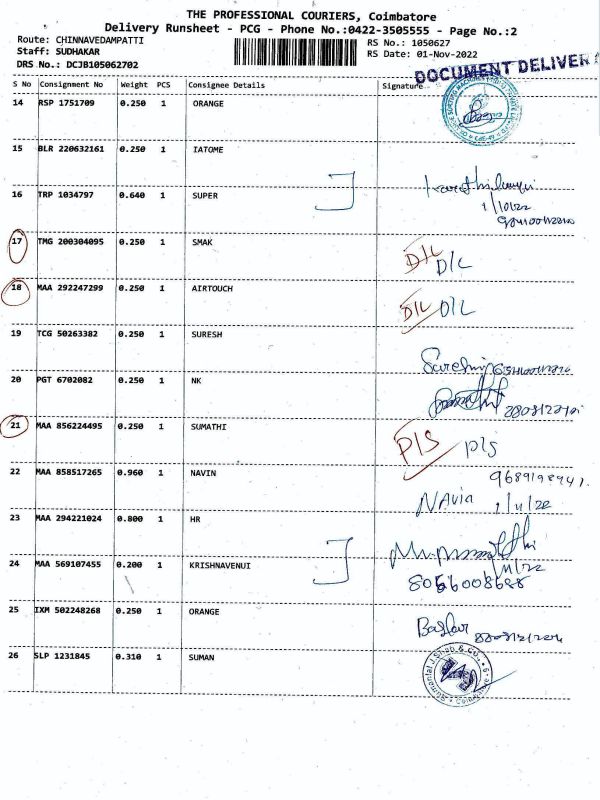 THE PROFESSIONAL COURIERS, Coimbatore
Delivery Runsheet - PCG - Phone No.:0422-3505555 - Page No.:2
Route: CHINNAVEDAMPATTI RS No.: 1050627
Staff: SUDHAKAR RS Date: 01-Nov-2022
DRS No.: DCJB105062702
DOCUMENT DELIVER
S No Consignment No Weight PCS Consignee Details Signature
14 RSP 1751709 0.250 1 ORANGE
15 BLR 220632161 0.250 1 IATOME
16 TRP 1034797 0.640 1 SUPER
17 TMG 200304095 0.250 1 SMAK D/L D/L
18 MAA 292247299 0.250 1 AIRTOUCH D/L D/L
19 TCG 50263382 0.250 1 SURESH
20 PGT 6702082 0.250 1 NK
21 MAA 856224495 0.250 1 SUMATHI P/S P/S
22 MAA 858517265 0.960 1 NAVIN
NAvin 1/11/22
23 MAA 294221024 0.800 1 HR
24 MAA 569107455 0.200 1 KRISHNAVENUI
1/11/22
8056008688
25 IXM 502248268 0.250 1 ORANGE
26 SLP 1231845 0.310 1 SUMAN